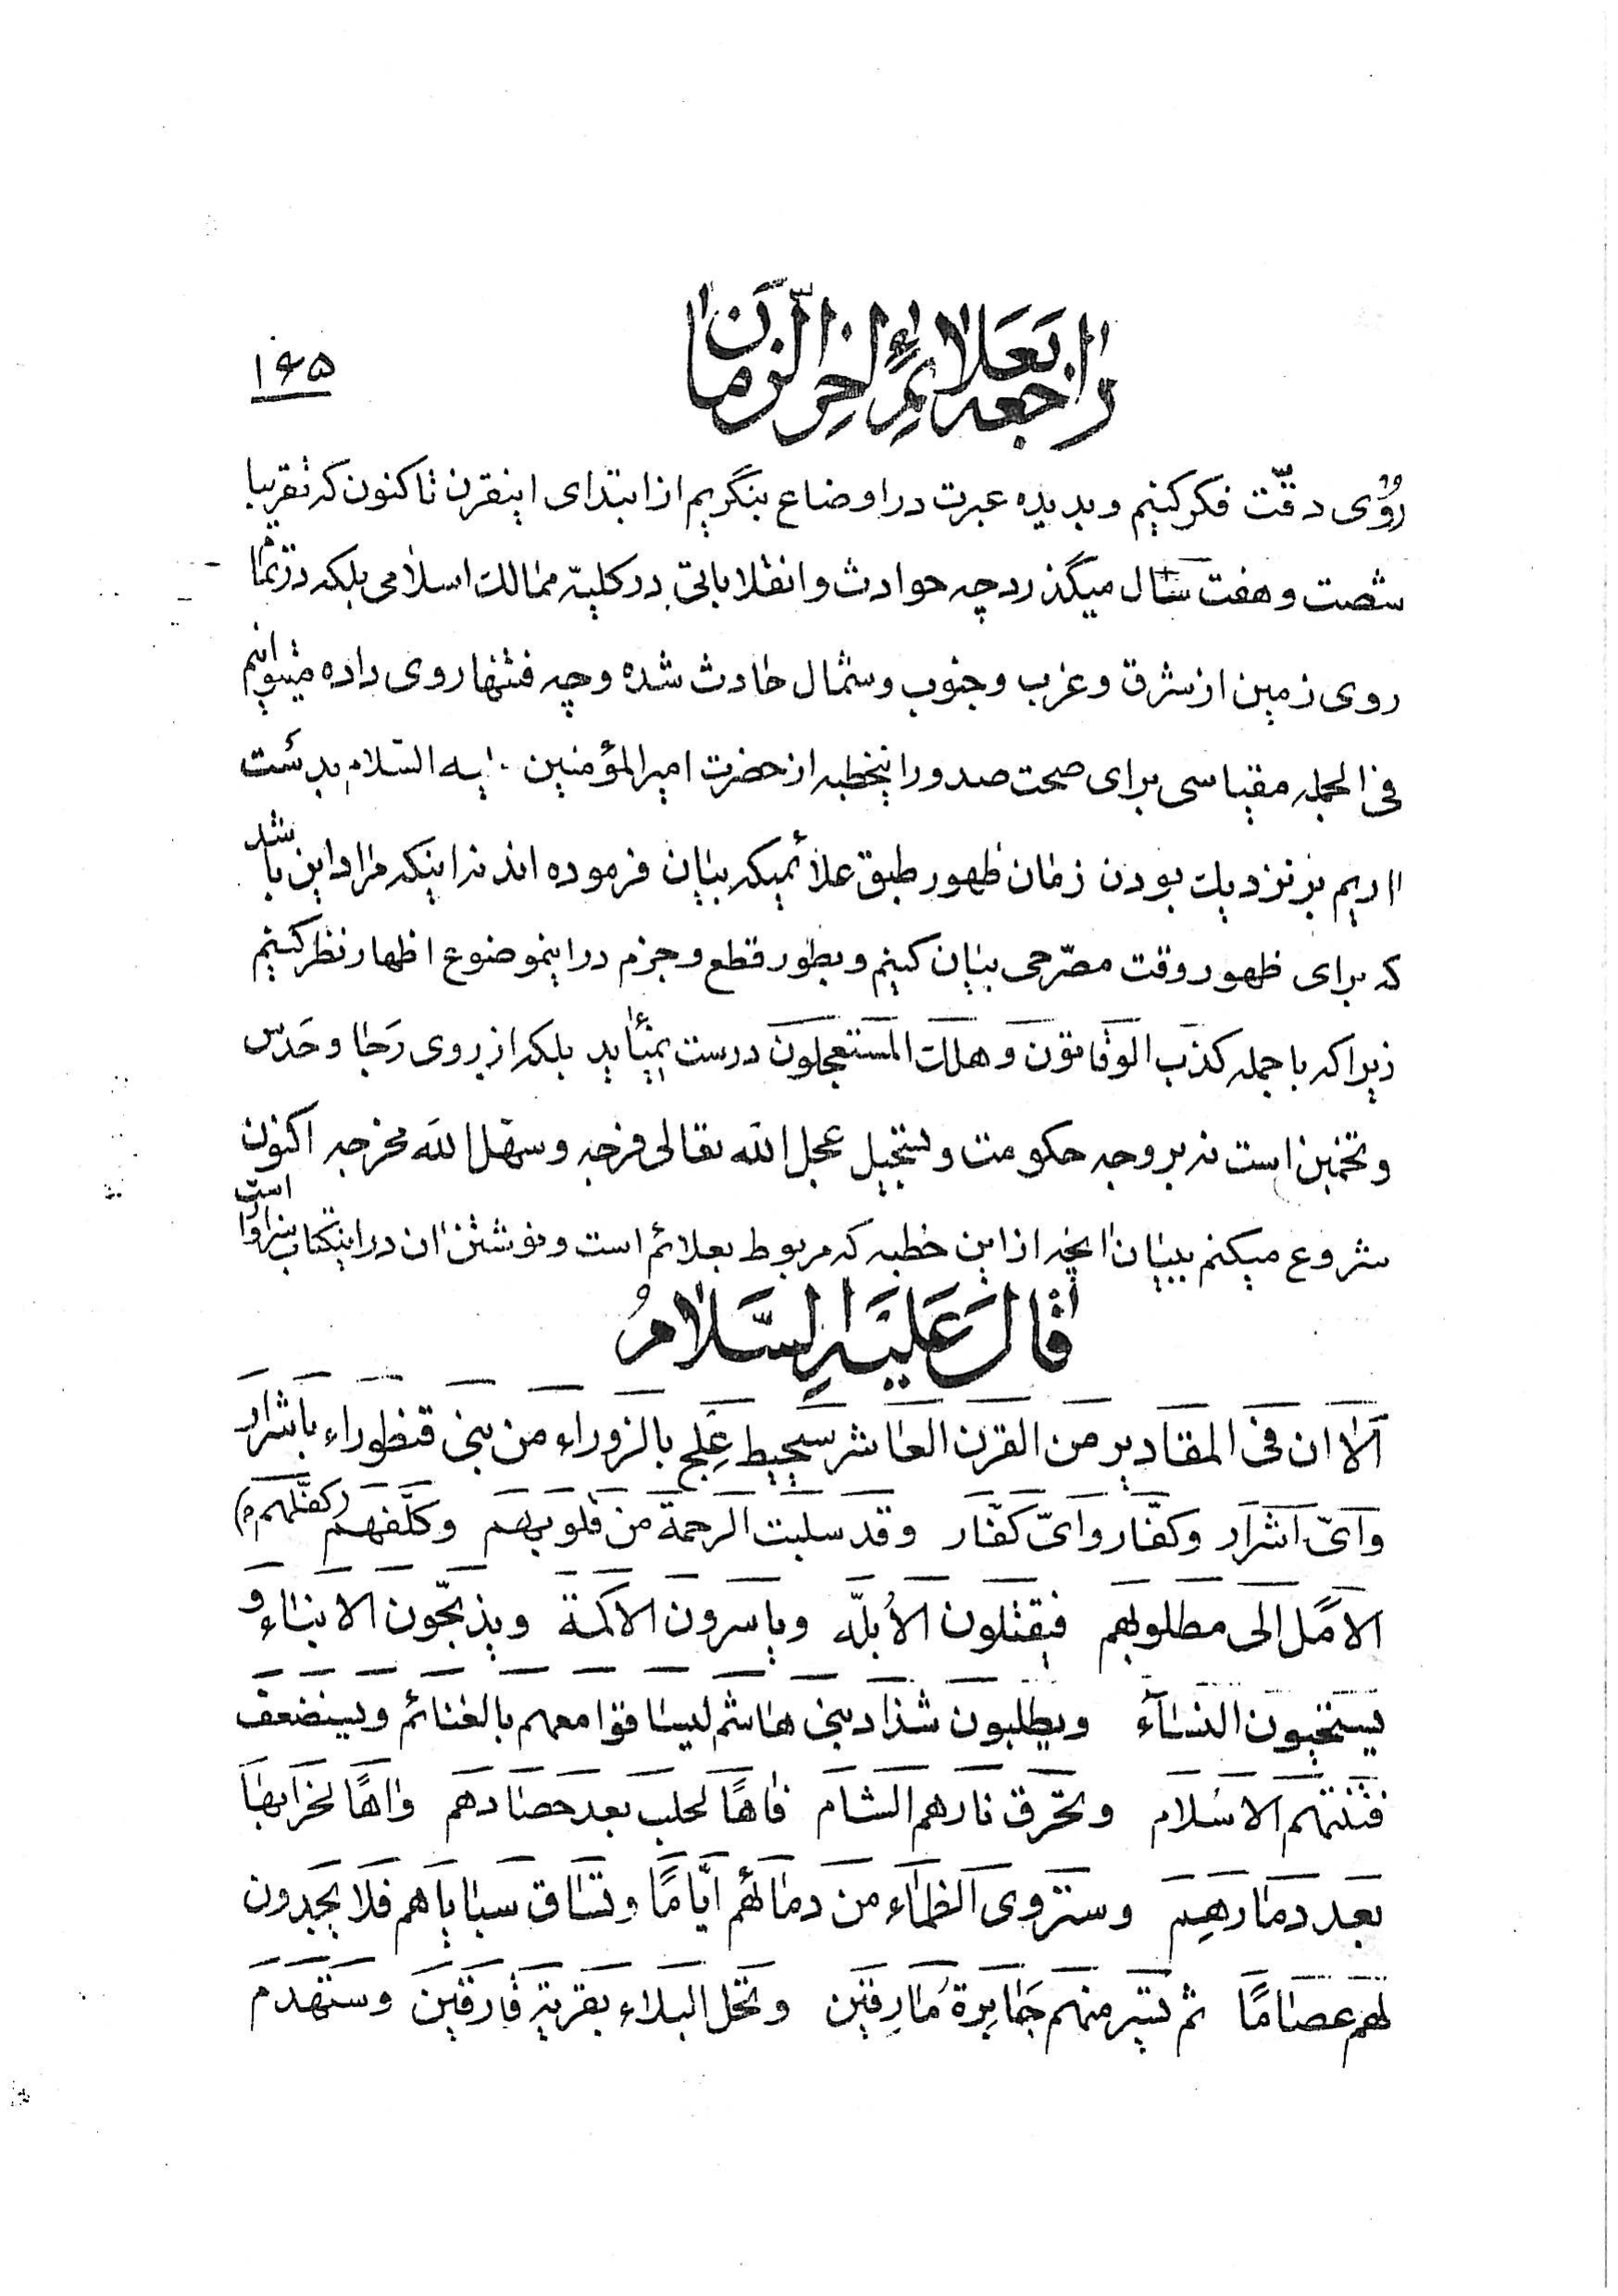 راجعه بعلائم اخر الزمان
۱۶۵
روُی دقّت فکر کنیم و بدیده عبرت در اوضاع بنگریم از ابتدای اینقرن تا کنون که تقریبا
شصت و هفت سال میگذرد چه حوادث و انقلاباتی در کلیه ممالک اسلامی بلکه در تمام
روی زمین از شرق و غرب و جنوب و شمال حادث شده و چه فتنها روی داده میتوانیم
فی الجمله مقیاسی برای صحت صدور اینخطبه از حضرت امیر المؤمنین علیه السلام بدست
اریم بر نزدیک بودن زمان ظهور طبق علائمیکه بیان فرموده اند نه اینکه مراد این باشد
که برای ظهور وقت مصرّحی بیان کنیم و بطور قطع و جزم در اینموضوع اظهار نظر کنیم
زیرا که با جمله کذب الوقاتون و هلک المستعجلون درست نمیآید بلکه از روی رجا و حَدس
و تخمین است نه بر وجه حکومت و تسجیل عجل الله تعالی فرجه و سهل الله مخرجه اکنون
شروع میکنم ببیان انچه از این خطبه که مربوط بعلائم است و نوشتن ان در اینکتاب سزاوار است
قالَ عَلَیهِ السَّلامُ
اَلا ان فی المقادیر من القرن العاشر سیحیط عِلج بالزوراء من بنی قنطوراء باشرار
وایّ اشرار وکفّار وایّ کفّار وقد سلبت الرحمة من قلوبهم وکلّفهم (کفّلهم م)
الامل الی مطلوبهم فیقتلون الأبلّه ویاسرون الاکمة ویذبحّون الابناء و
یستحیون النساء ویطلبون شذاد بنی هاشم لیساقوا معهم بالغنائم ویستضعف
فتنتهم الاسلام وتحرق نارهم الشام فاهًا لحلب بعد حصارهم واهًا لخرابها
بعد دمارهِم وستروی الظماء من دمائهم ایّامًا وتساق سبایاهم فلا یجدون
لهم عصامًا ثم تسیر منهم جبابِرة مُارِقین وتحل البلاء بقریة فارقین وستهدم